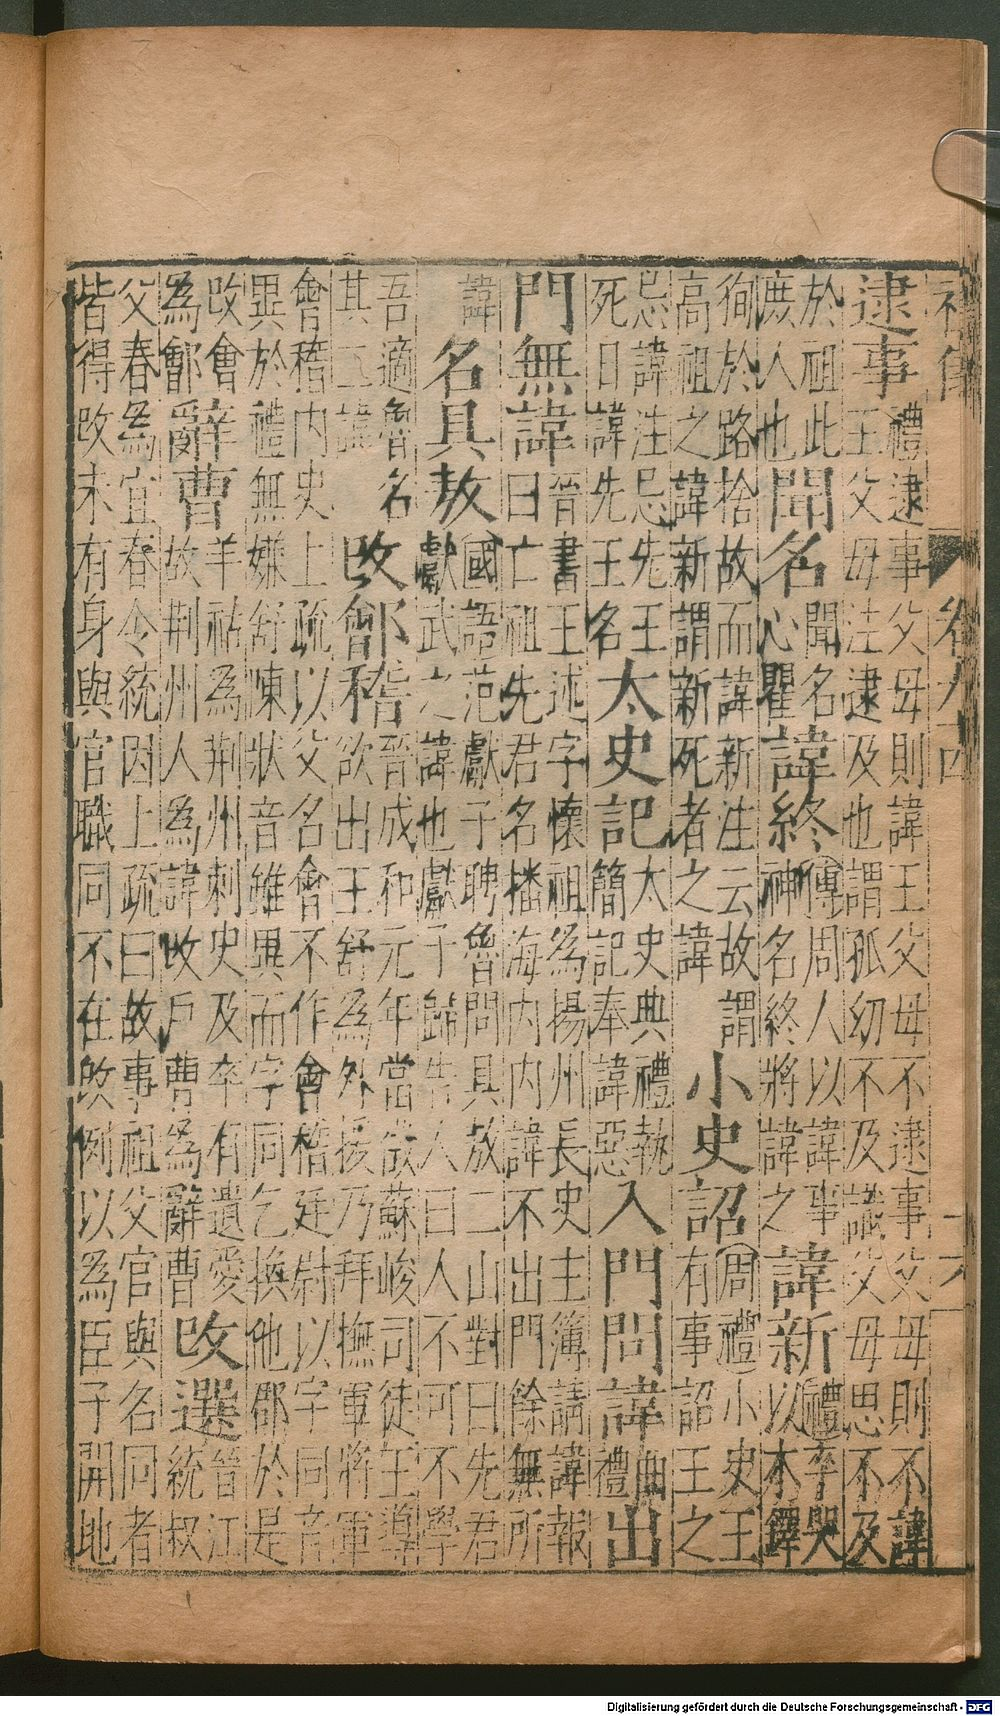 逮事 禮逮事父母則諱王父母不逮事父母則不諱
王父母注逮及也謂孤幼不及識父母思不及
於祖此 聞名 聞名 諱終 (傳)周人以諱事 諱新 (禮)卒哭
庶人也 心瞿 神名終將諱之 以木鐸
徇於路捨故而諱新注云故謂 小史詔 (周禮)小史王
高祖之諱新謂新死者之諱 有事詔王之
忌諱注忌先王 太史記 太史典禮執 入門問諱 曲
死日諱先王名 簡記奉諱惡 禮 出
門無諱 晉書王述字懷祖為揚州長史主簿請諱報
曰亡祖先君名播海內內諱不出門餘無所
諱 名具敖 國語范獻子聘魯問具敖二山對曰先君
獻武之諱也獻子歸告人曰人不可不學
吾適魯名 改鄶稽 晉咸和元年當欲蘇峻司徒王導
其二諱 欲出王舒為外援乃拜撫軍將軍
會稽內史上疏以父名會不作會稽廷尉以字同音
異於禮無嫌舒陳狀音雖異而字同乞換他郡於是
改會 辭曹 羊祜為荆州刺史及卒有遺愛 改選 晉江
為鄶 故荆州人為諱改戶曹為辭曹 統叔
父春為宜春令統因上疏曰故事祖父官與名同者
皆得改未有身與官職同不在改例以為臣子開地
卷九四
Digitalisierung gefördert durch die Deutsche Forschungsgemeinschaft - DFG